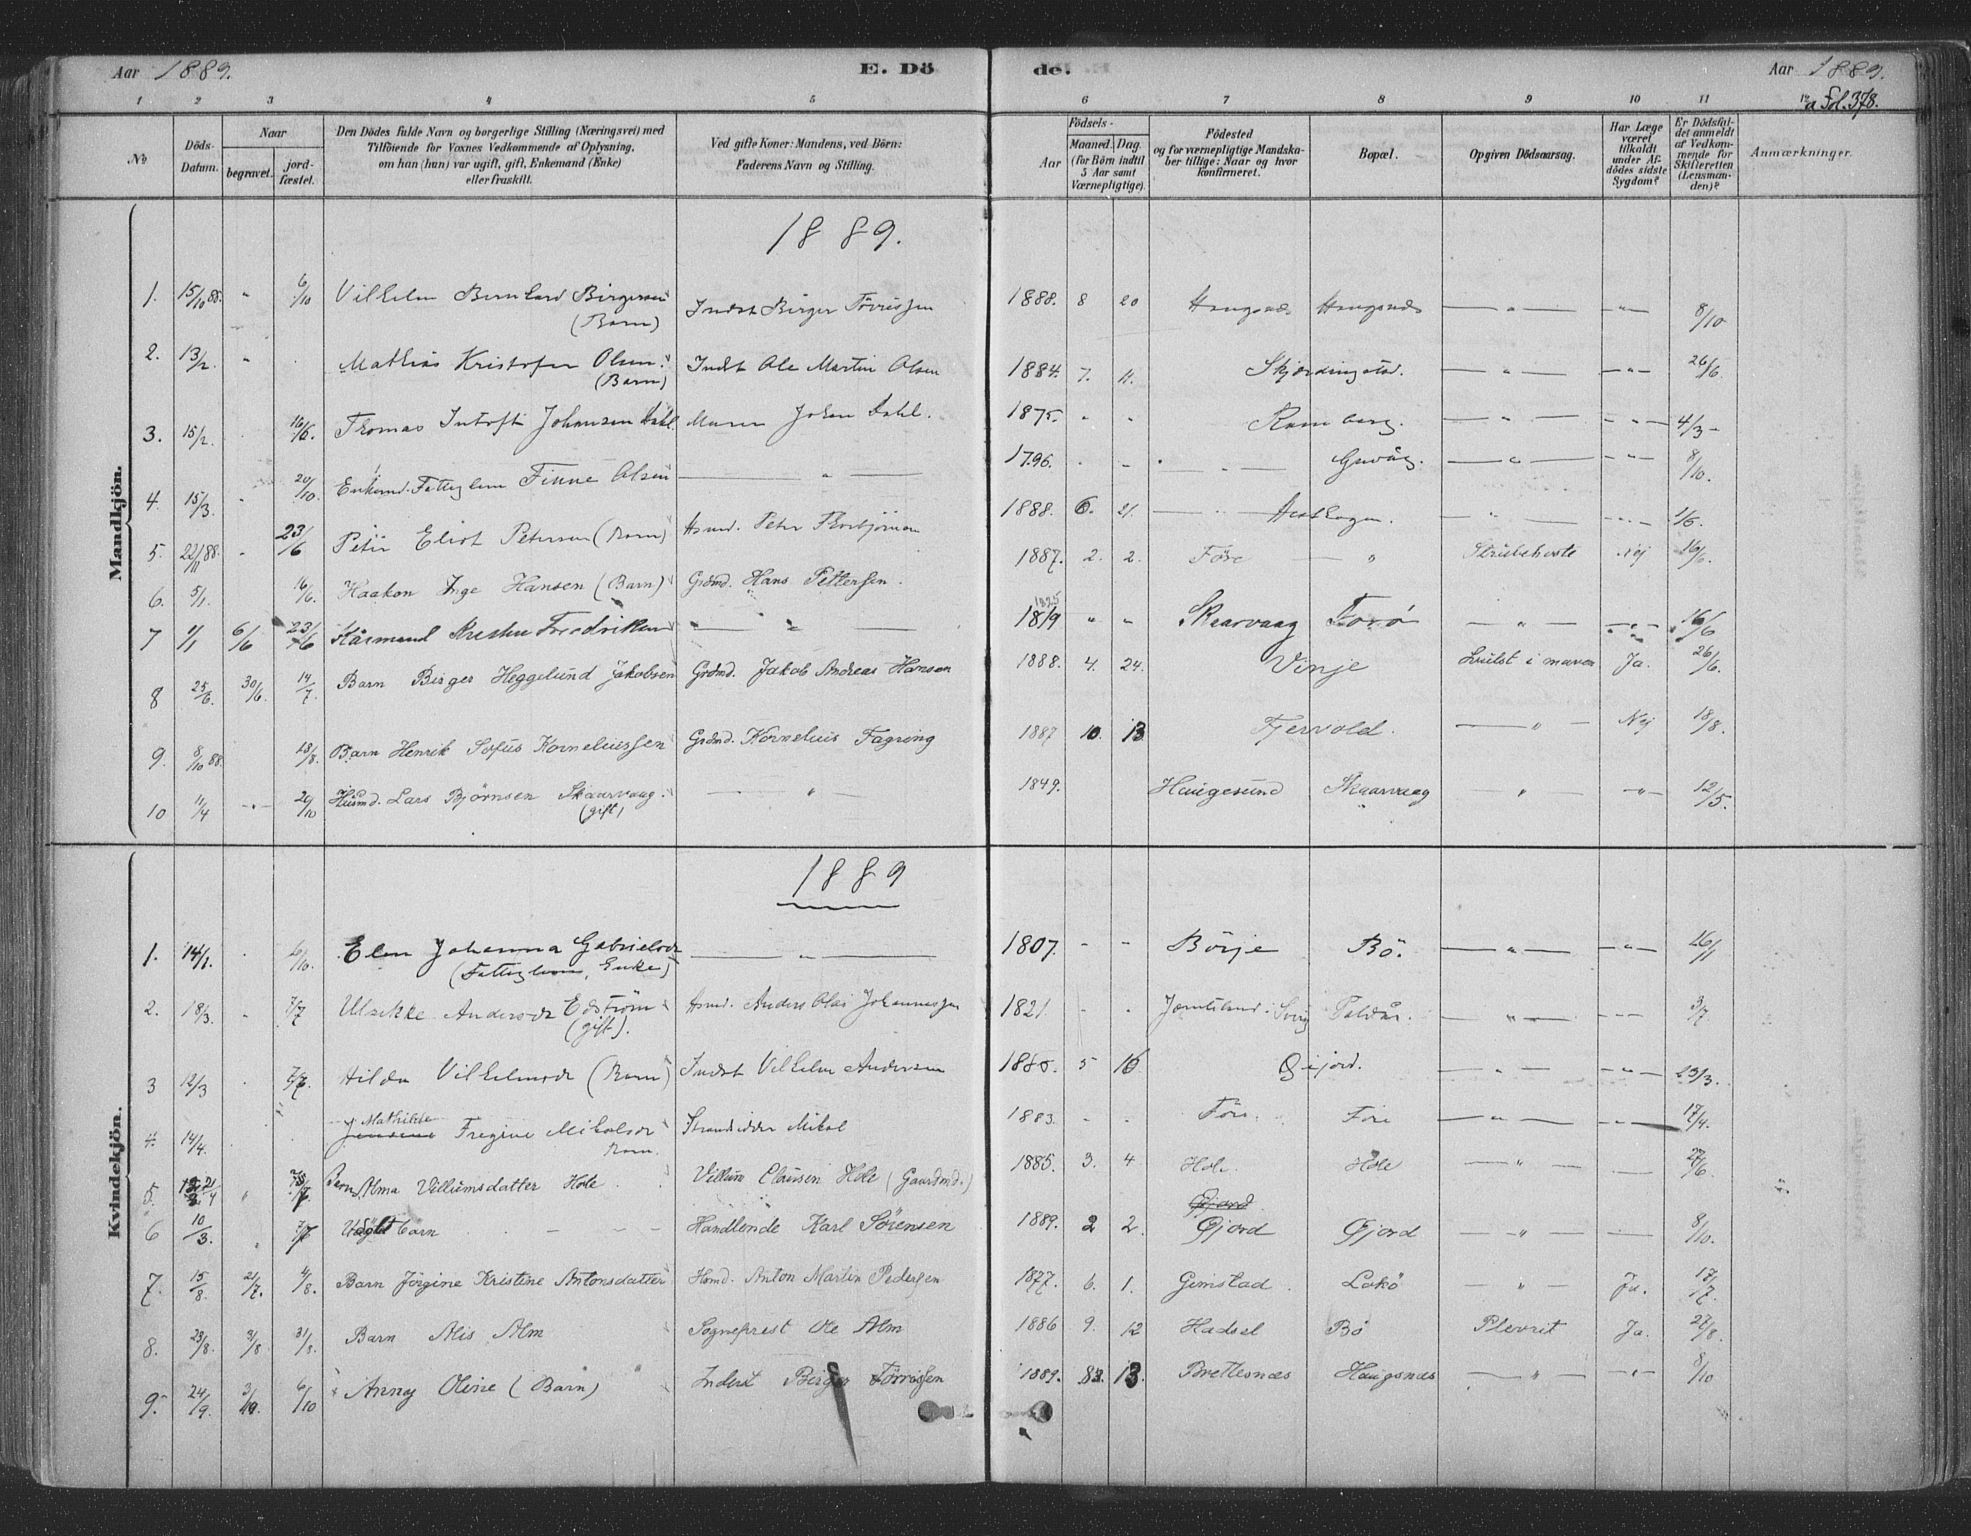 Aar 1889. E. Dö de. Aar 1889.
1 2 3 4 5 6 7 8 9 10 11 12
a Fol. 378.
No Döds-Datum. Naar begravet. jord-fæstet. Den Dödes fulde Navn og borgerlige Stilling (Næringsvei) med Tilföiende for Voxnes Vedkommende af Oplysning, om han (hun) var ugift, gift, Enkemand (Enke) eller fraskilt. Ved gifte Koner: Mandens, ved Börn: Faderens Navn og Stilling. Födsels- Aar Maaned. Dag. (for Börn indtil 5 Aar samt Værnepligtige). Födested og for værnepligtige Mandska-ber tillige: Naar og hvor konfirmeret. Bopæl. Opgiven Dödsaarsag. Har Læge været tilkaldt under Af-dödes sidste Sygdom? Er Dödsfal-det anmeldt af Vedkom-mende for Skifteretten (Lensman-den)? Anmærkninger.
Mandkjön.
1889.
1. 15/10 88. " 6/10 Vilhelm Bernhard Birgersen (Barn) Indst Birger Törrissen 1888. 8 20 Haugsnes Haugsnes — " — — " — 8/10
2. 13/2. " Mathias Kristofer Olsen (Barn) Indst Ole Martin Olsen 1884. 7. 11. Skjerdingstad. — " — — " — 26/6.
3. 15/2. 16/6. Thomas Johansen Dahl. Murer Johan Dahl. 1875. - - Ramberg. — " — — " — 4/3 -
4 15/3. 20/10. Enkemd. Fattiglem Finne Olsen — " — 1796. - - — " — — " — — " — 8/10.
5. 22/11 88. - 23/6 Peter Eliot Petersen (Barn) Hsmd. Peter 1888. 6. 21. — " — " — " — 1/6.
6. 5/1. 16/6. Haakon Inge Hansen (Barn) Grdmd. Hans Pettersen. 1887. 2. 2. Före — " Strubehoste Nej 16/6.
7 1/1 6/6 23/6 Kristen Fredriksen — " — 1825 1819 " " Skaarvaag — " — — " — 16/6
8 25/6. 30/6. 14/7. Barn Birger Heggelund Jakobsen Grdmd. Jakob Andreas Hansen 1888. 4. 24. Vinje i maven Ja. 26/6.
9. 8/10 88. 18/8. Barn Henrik Sofus Korneliussen Grdmd. Kornelius Fagring 1887 10. 13. Tjervold. — " — Nej 18/8.
10 11/4 - " - 20/10 Husmd. Lars Bjørnsen Skaarvaag. (gift) — " — 1849. Haugesund Skaarvaag " — " — 12/5.
Kvindekjön.
1889
1. 14/1. 6/10. Elen Johanna Gabrielsdr (Fattiglem, Enke) — " — 1807. - - Börje Bö. — " — — " — 16/1
2. 18/3. " 7/7 Ulrikke Andersdr Edström (gift). Hsmd. Anders Olai Johannessen 1821. - - Jæmtland i Sverig — " — — - — 3/7.
3 12/3 7/7. Hilda Vilhelmsdr (Barn) Indst Vilhelm Andersen 5 16 — " — — " — 23/3.
4. 14/4. Mathilde Fregine Mikalsdr Barn. Strandsidder Mikal 1883. - - Före Före — " — — " — 17/4.
5. 21/4 " Barn Alma Villumsdatter Hole Villum Clausen Hole (Gaardmd.) 1885. 3. 4 Hole. Hole — " — — 27/6.
6 10/3. " 7/7 Udöbt barn - - - Handlende Karl Sörensen 1889. 2 2. Gjord Gjord — " — — " — 8/10.
7. 15/8. 21/7. 4/8. Barn Jörgine Kristine Antonsdatter Hsmd. Anton Martin Pedersen 1877. 6. 1. Gimstad. Lakö — " — Ja. 17/7.
8. 23/8. 31/8 31/8. Barn Alis Alm Sogneprest Ole Alm 1886 9. 12 Hadsel Bö Plevrit Ja. 27/8.
9. 24/9. 3/10. 6/10 Anny Oline (Barn) Inderst Birger Törrissen 1889. 13. Brettesnæs Haugsnæs — " — - " - 8/10